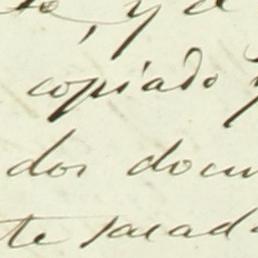 te, y el
copiado y
dos docu
te sacad